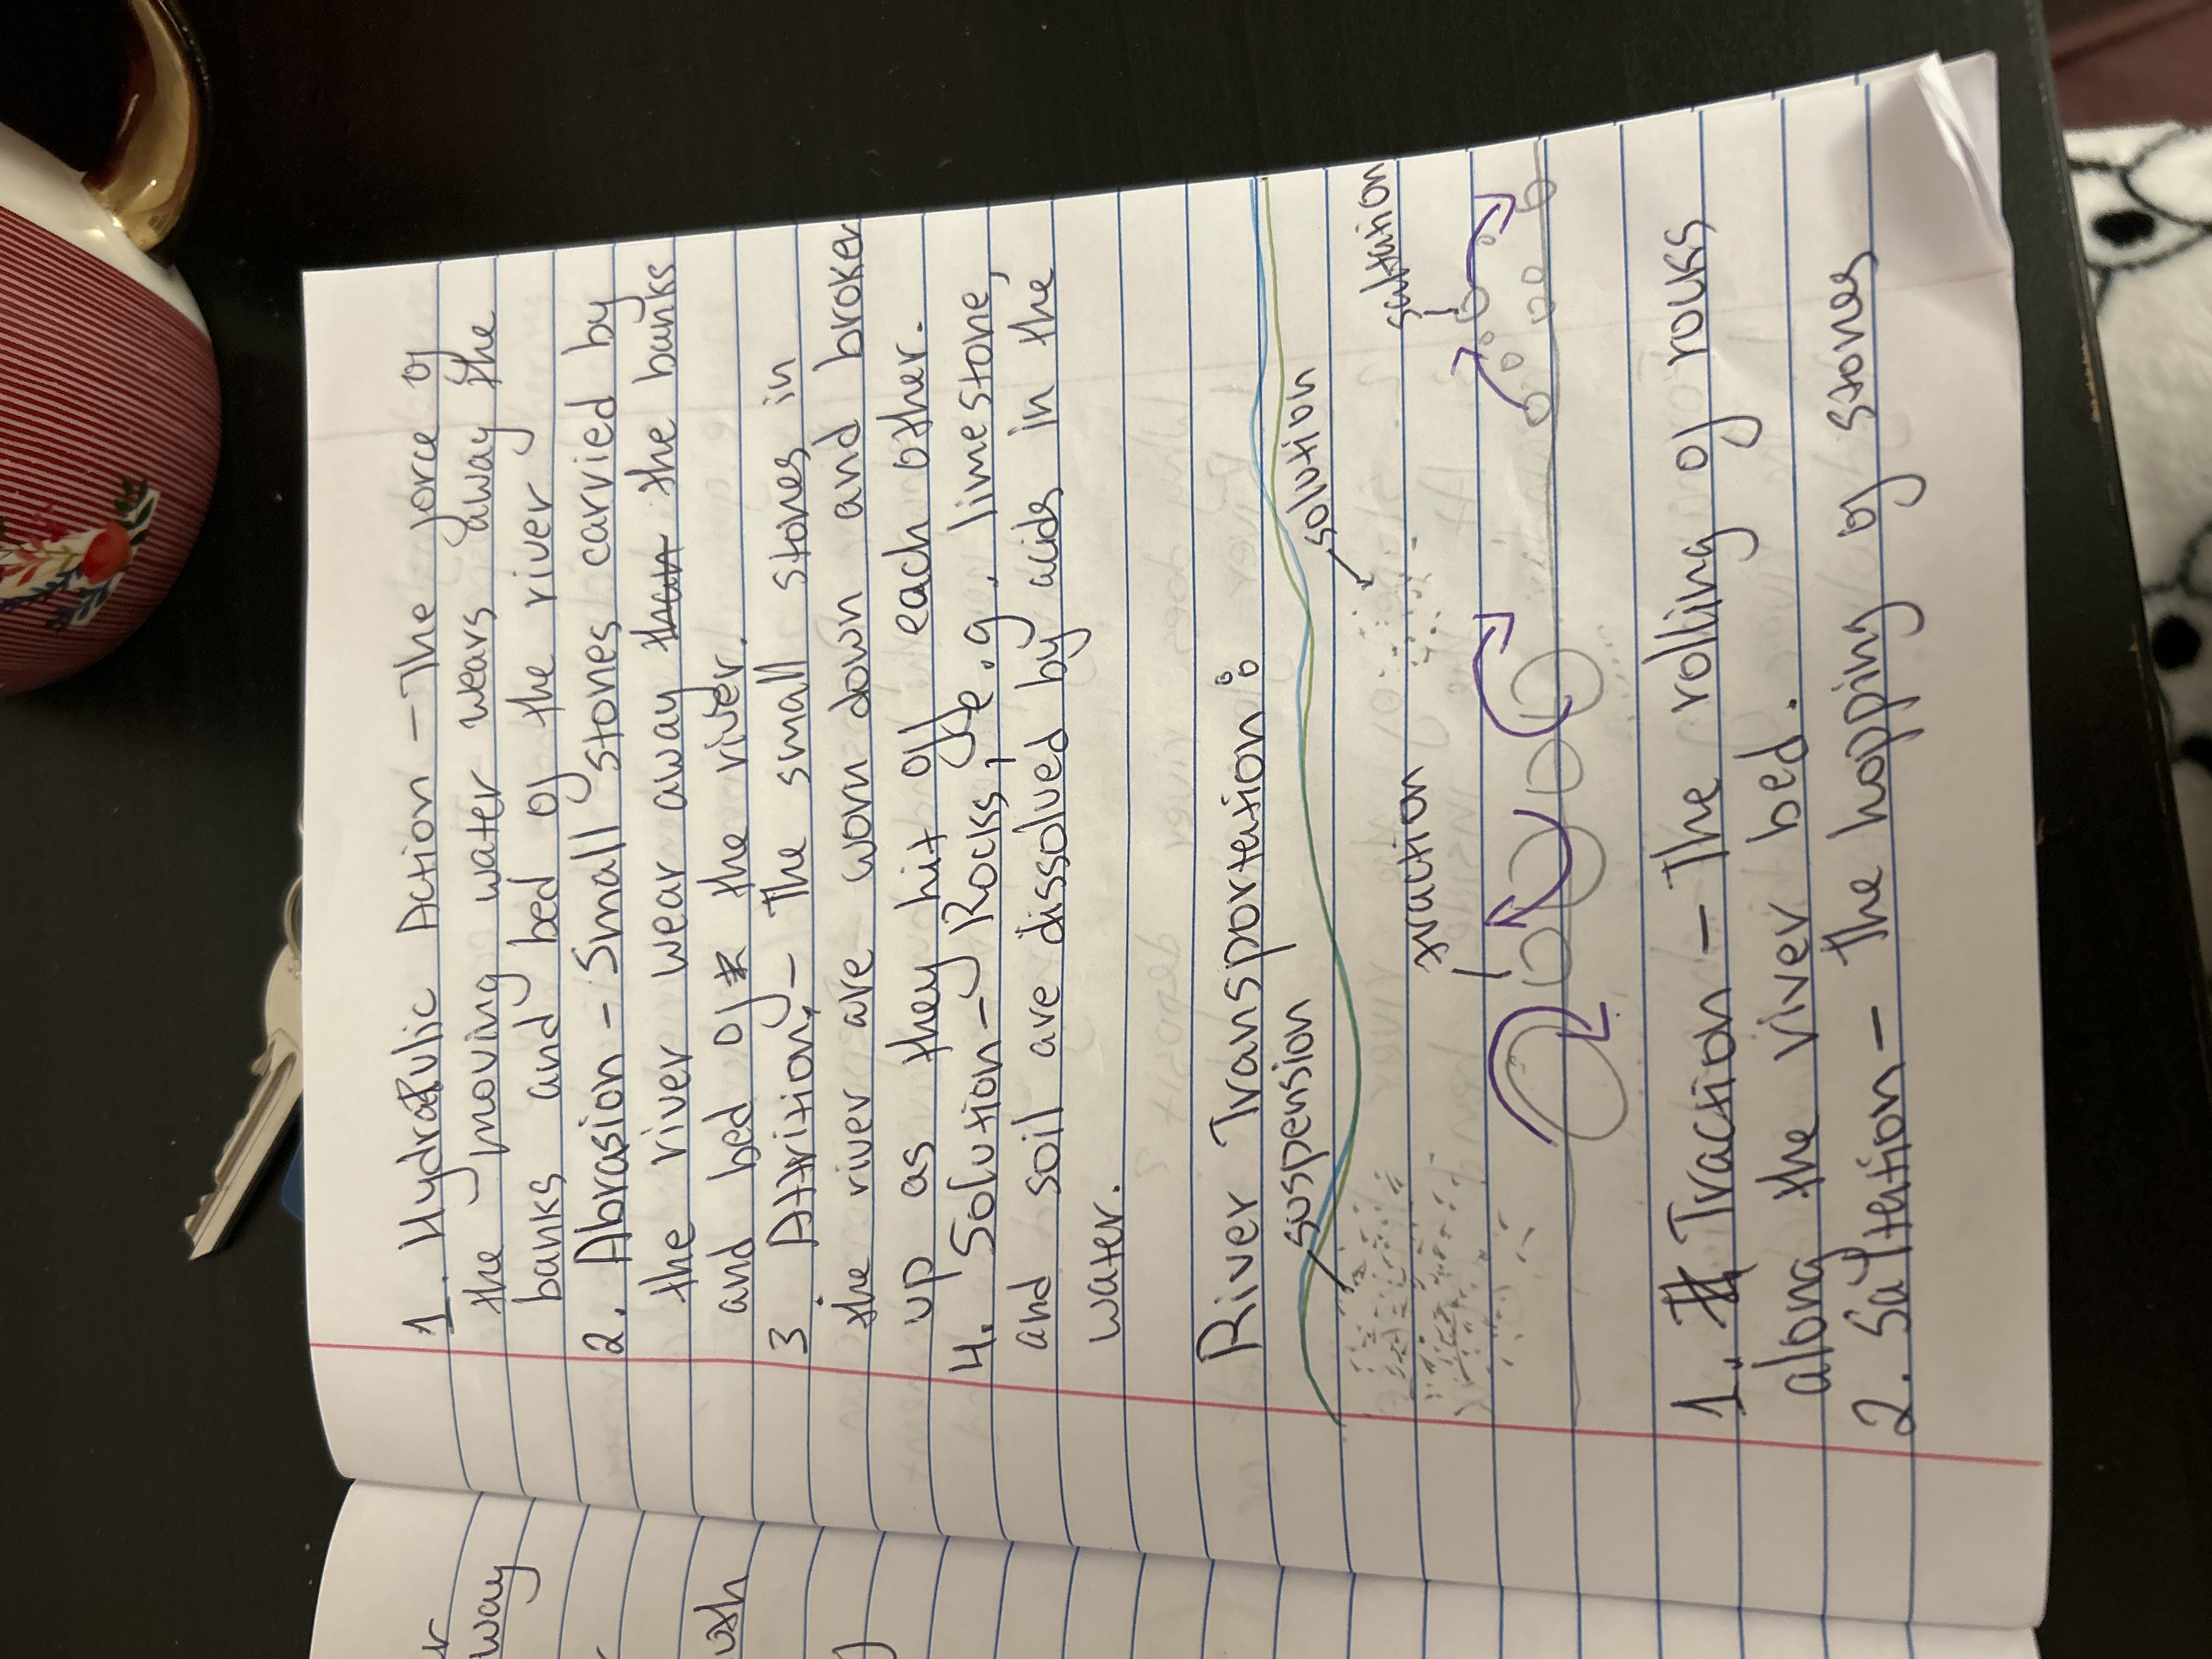 1. Hydraulic Action - The force of
the moving water wears away the
banks and bed of the river
2. Abrasion - Small stones carried by
the river wear away the banks
and bed of the river.
3. Attrition - The small stones in
the river are worn down and broken
up as they hit off each other.
4. Solution - Rocks, e.g. limestone,
and soil are dissolved by acids in the
water.
River Transportation:
suspension solution
traction saltation
1. Traction - The rolling of rocks
along the river bed.
2. Saltation - The hopping of stones
way